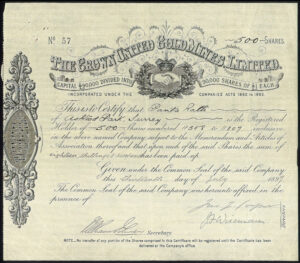 No 57 500 SHARES
THE CROWN UNITED GOLD MINES, LIMITED.
CAPITAL £90,000 DIVIDED INTO 90,000 SHARES OF £1 EACH
INCORPORATED UNDER THE COMPANIES ACTS 1862 TO 1893
This is to Certify that
Park Surrey is the Registered
Holder of 500 Shares numbered 1808 to 2307 inclusive
in the above named Company subject to the Memorandum and Articles of
Association thereof and that upon each of the said Shares the sum of
eighteen shillings has been paid up.
Given under the Common Seal of the said Company
this day of July 189
The Common Seal of the said Company was hereunto affixed in the
presence of
Secretary.
NOTE.-No transfer of any portion of the Shares comprised in this Certificate will be registered until the Certificate has been
delivered at the Company's Office.